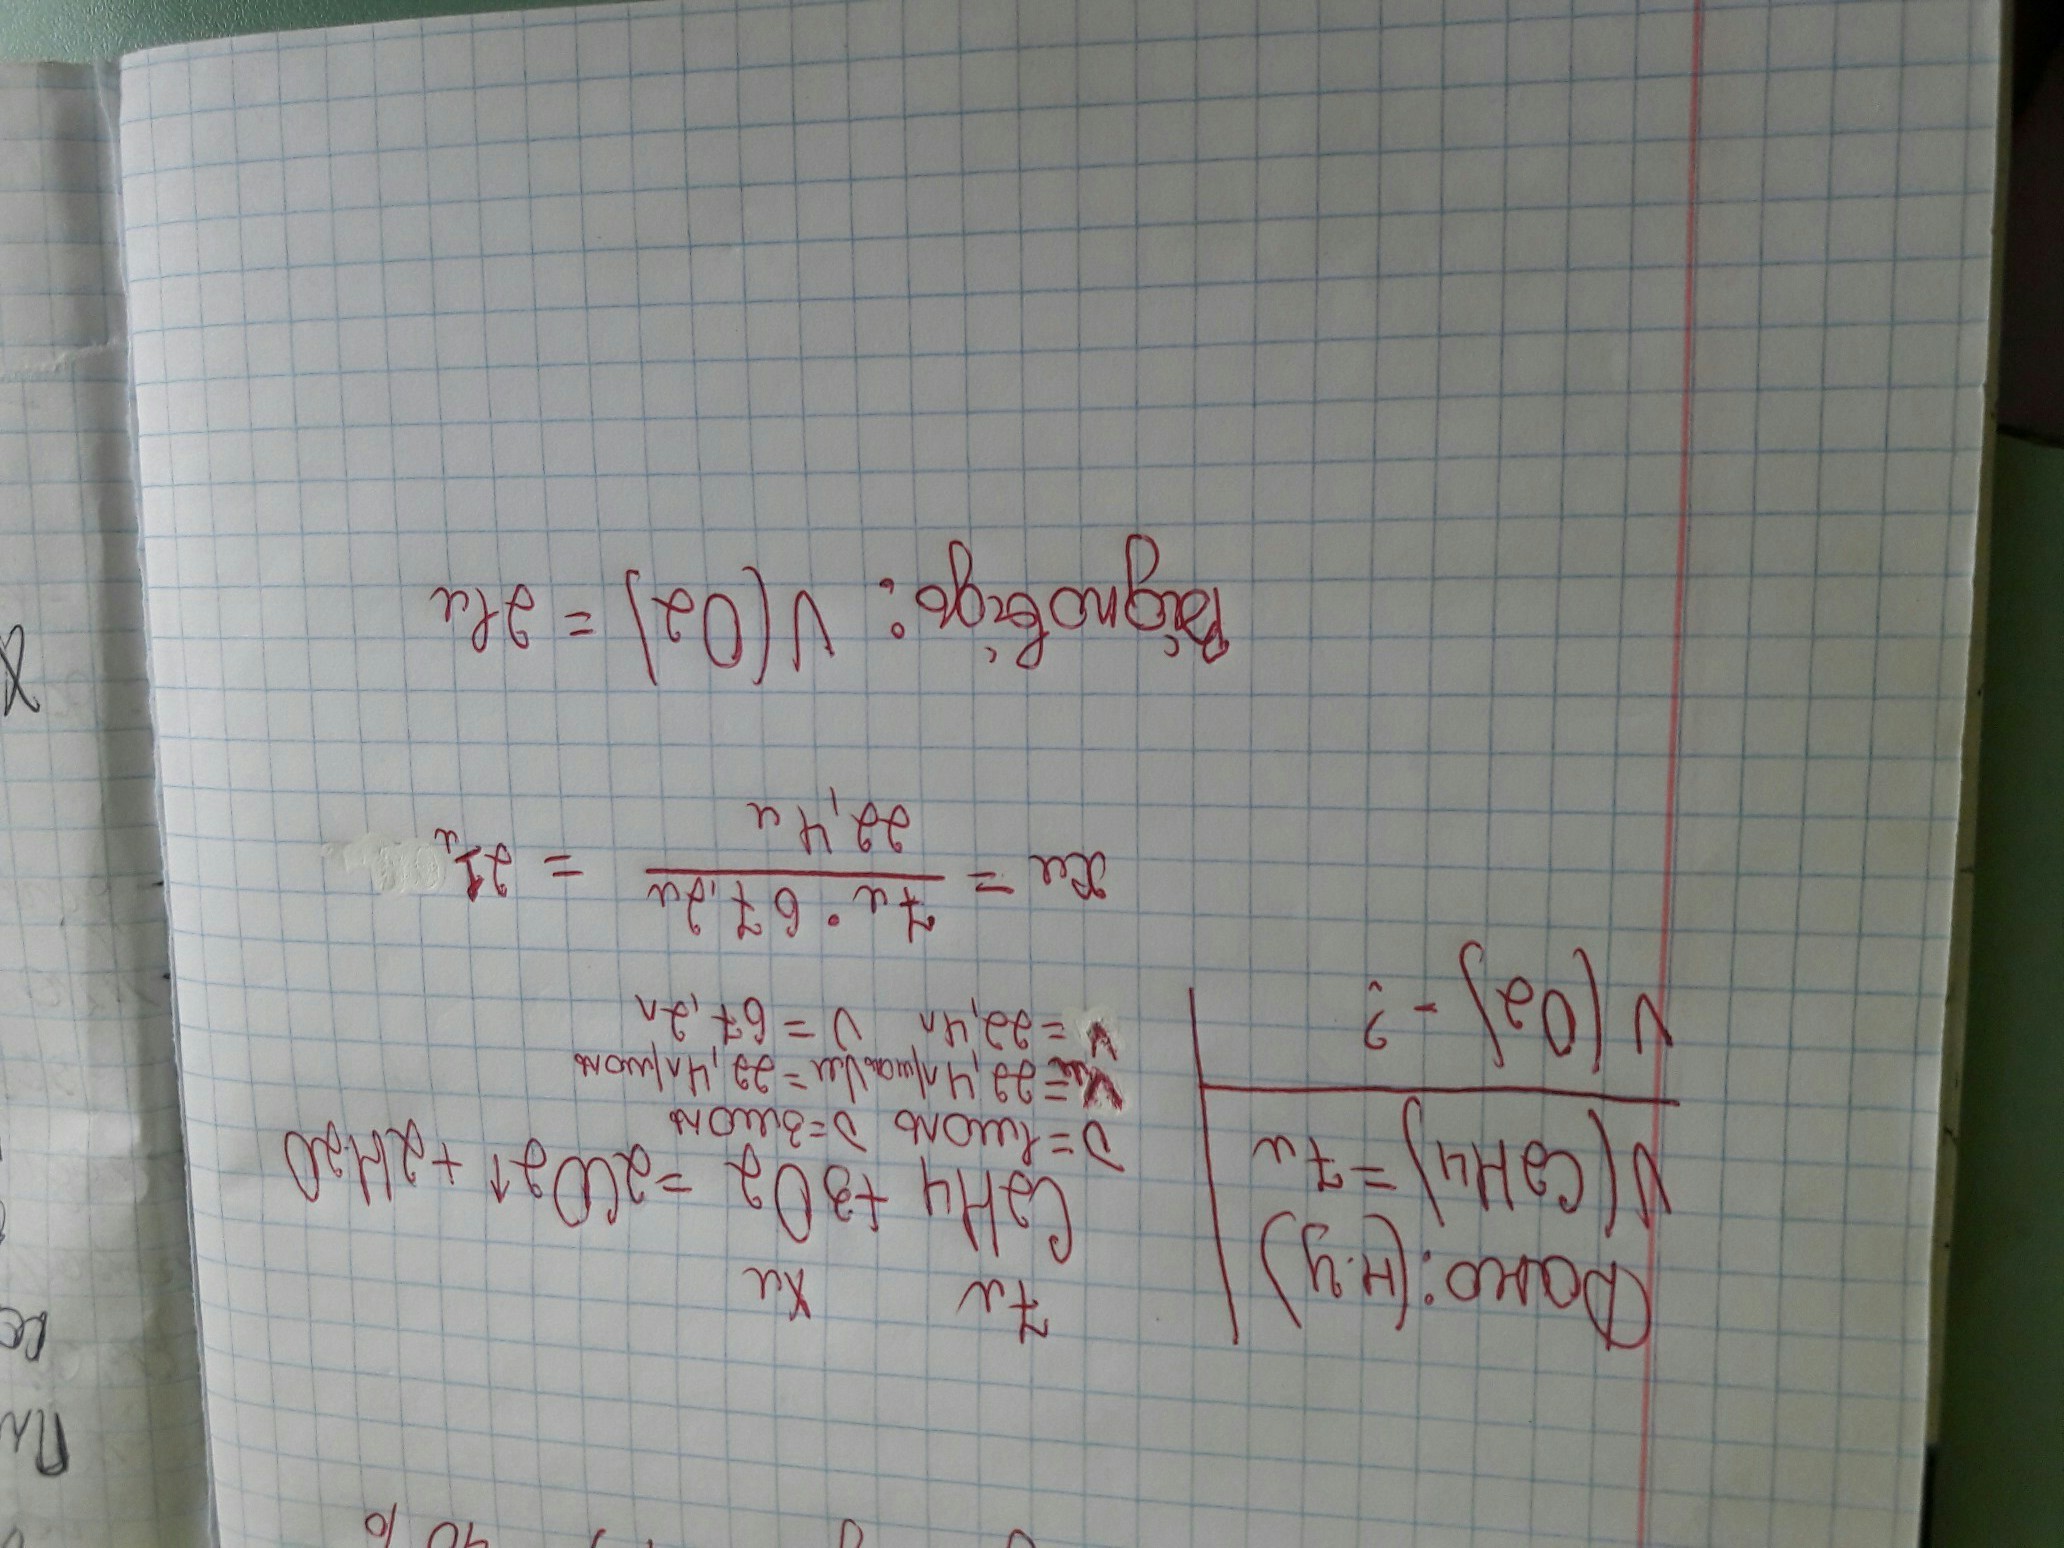 40%
Дано: (н.у)
V(C2H4) = 7л
V(O2) - ?
7л хл
C2H4 + 3O2 = 2CO2↑ + 2H2O
υ=1моль υ=3моль
Vм=22,4л/моль Vм=22,4л/моль
V=22,4л V=67,2л
хл = 7л · 67,2л / 22,4л = 21л
Відповідь: V(O2) = 21л